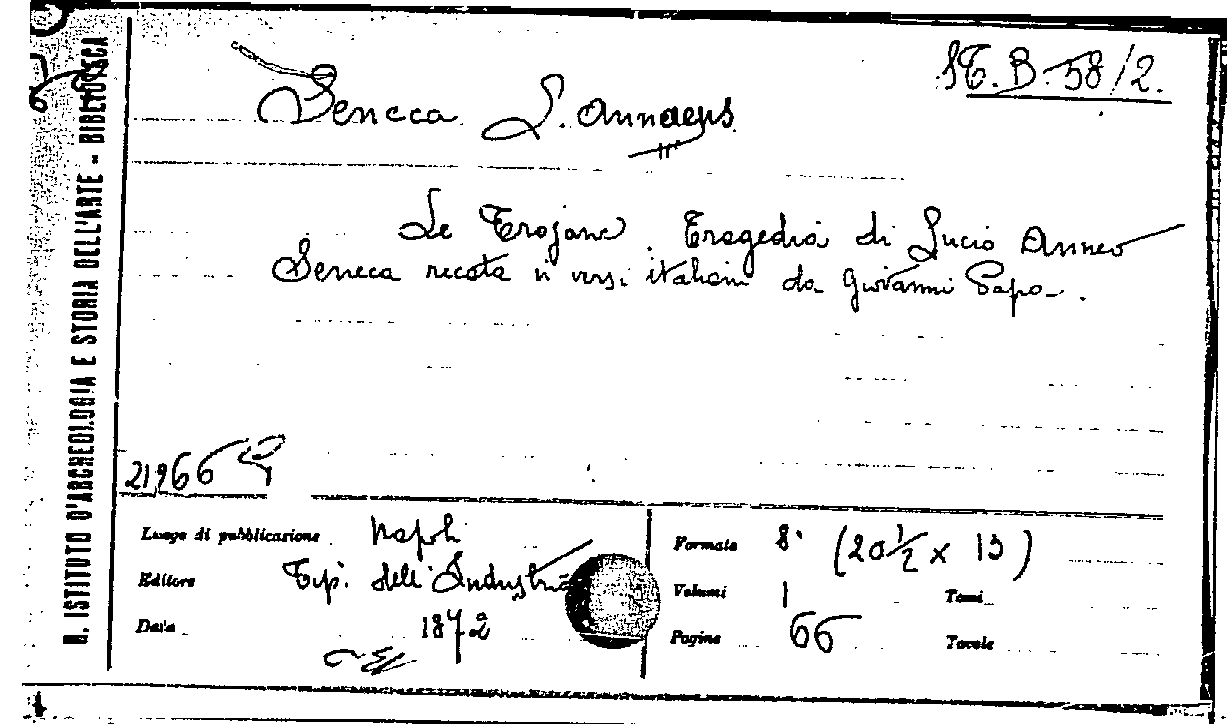 R. ISTITUTO D'ARCHEOLOGIA E STORIA DELL'ARTE - BIBLIOTECA
Seneca L. Annaeus
Le Trojane. Tragedia di Lucio Anneo
Seneca recata in versi italiani da Giovanni Papa.
21966
Luogo di pubblicazione Napoli
Editore Tip. dell'Industria
Data 1872
Formato 8° (20 1/2 x 13)
Volumi 1 Tomi
Pagine 66 Tavole